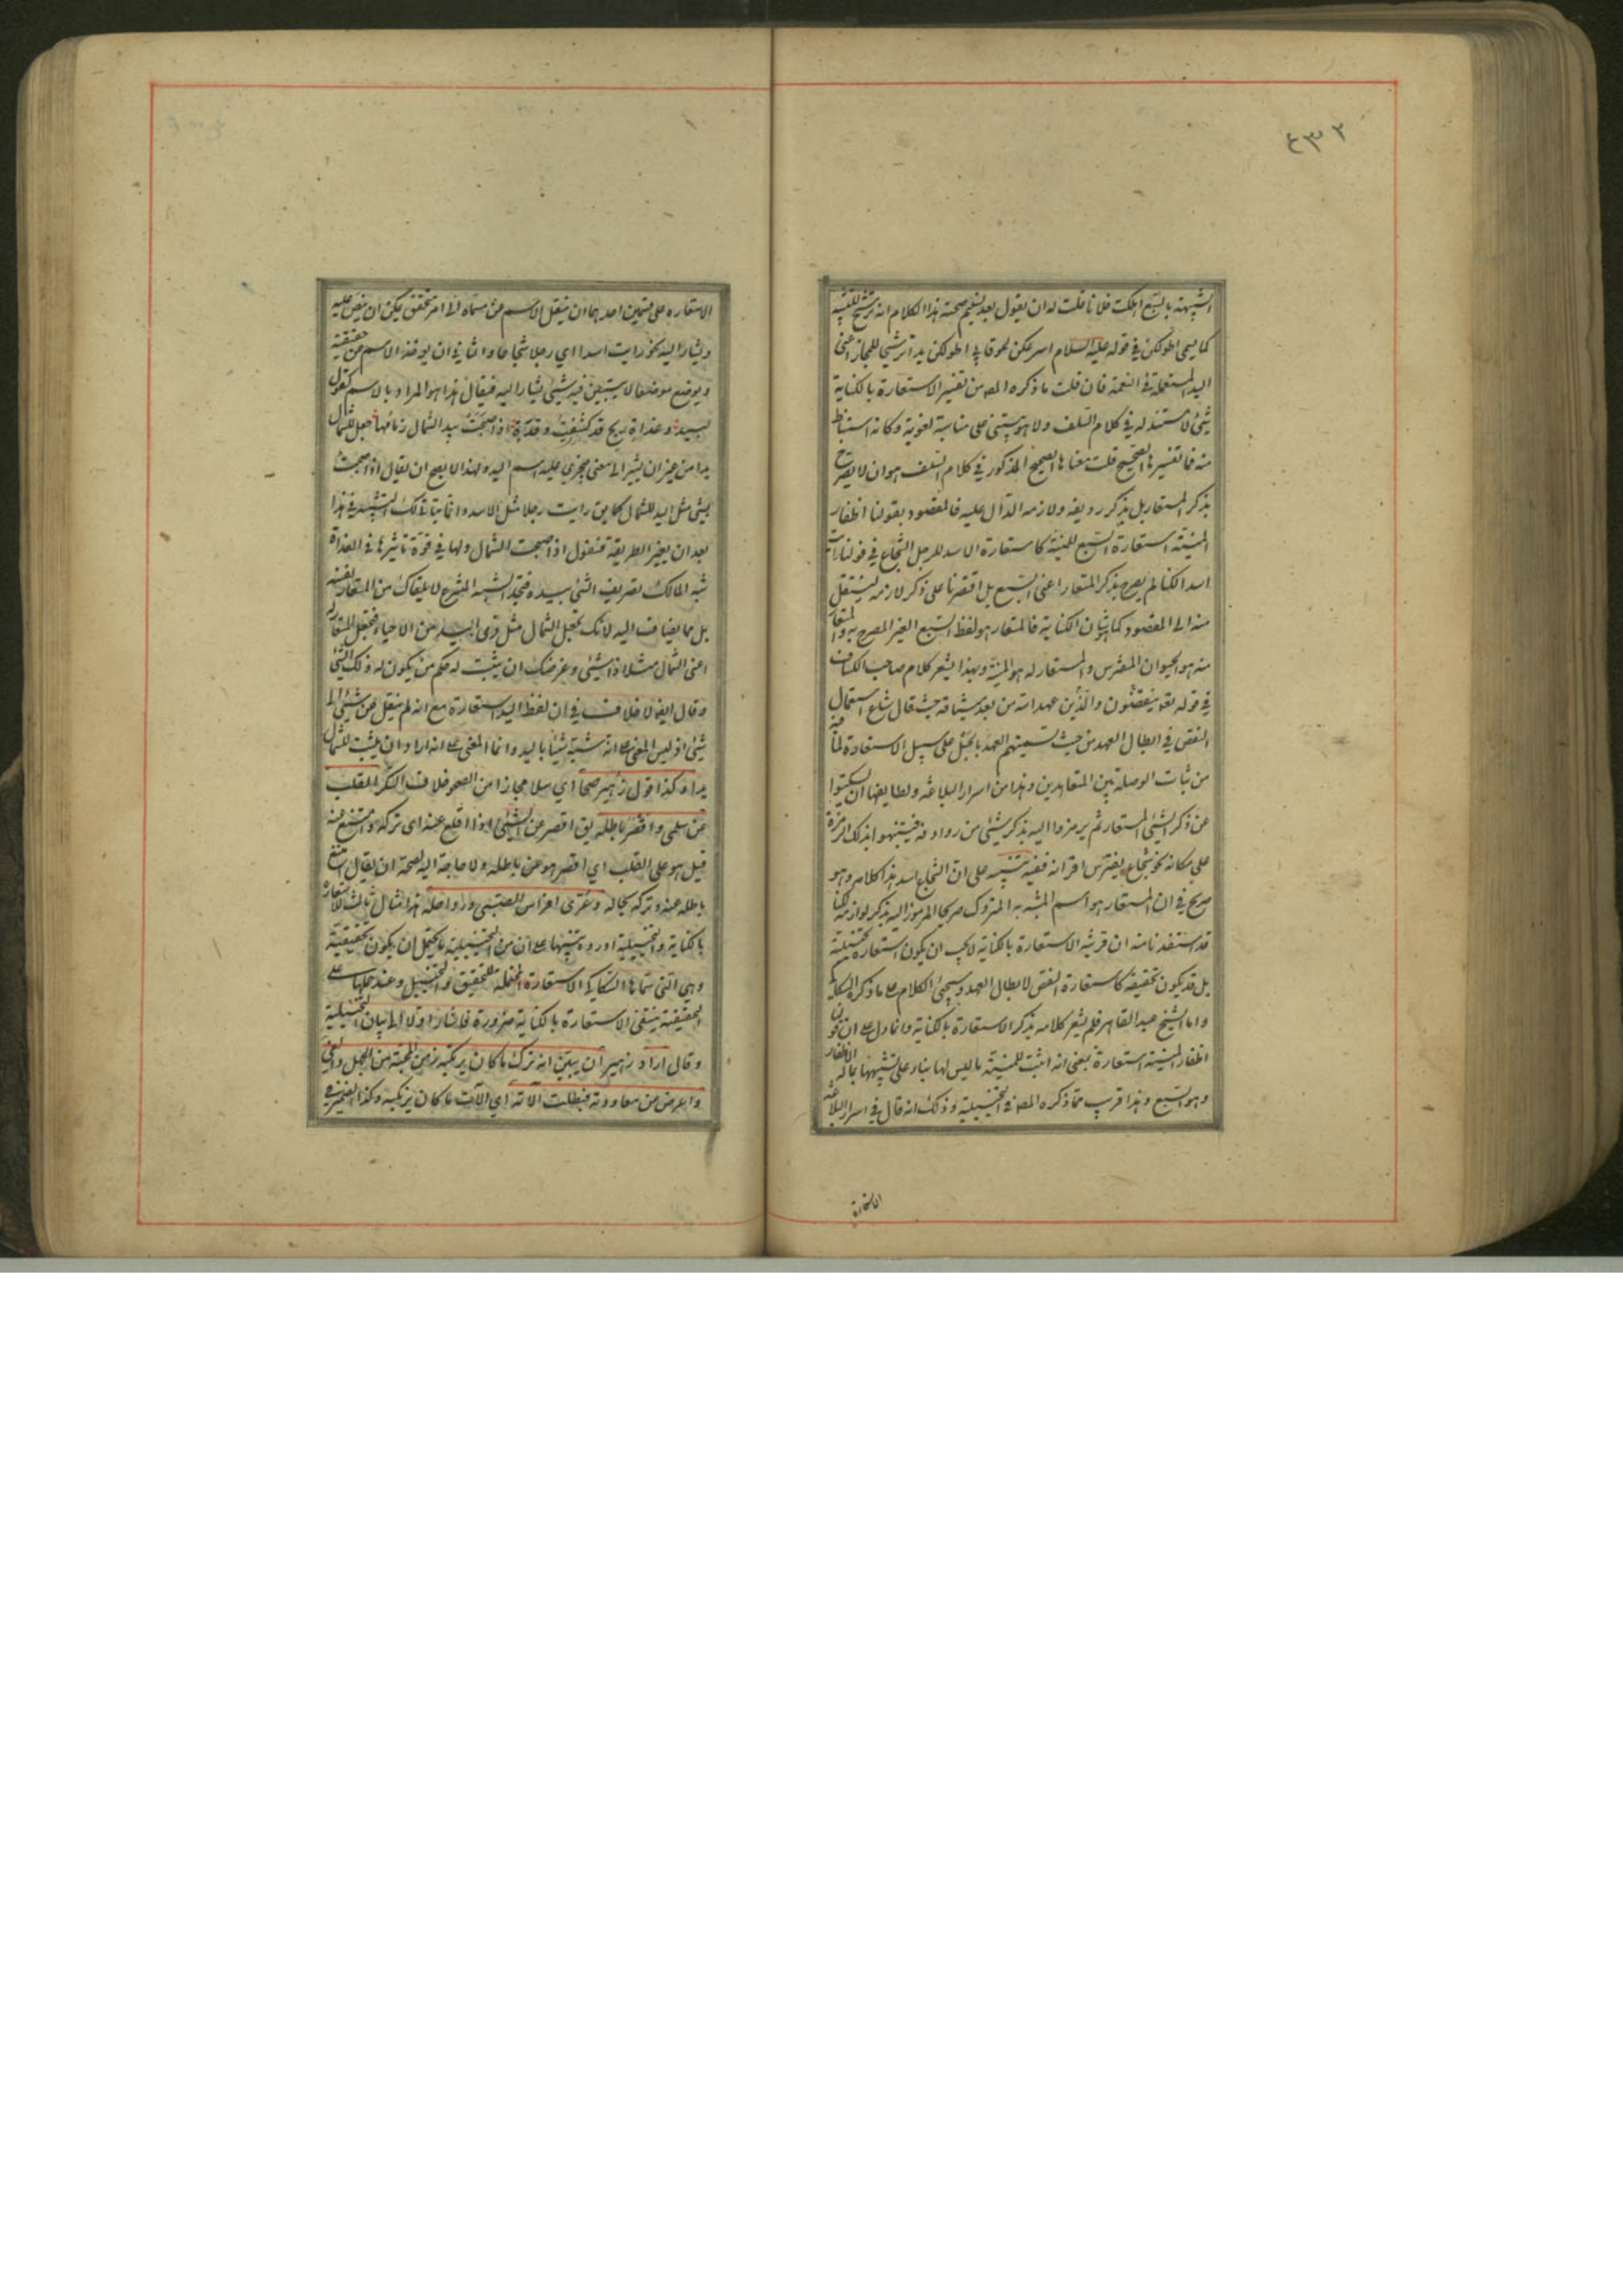 ٤٣٢
الشبيهة بالسبع اهلكت فلانا قلت له ان يقول بعد تسليم صحة هذا الكلام انه ترشيح للتشبيه
كما يسمى اطولكن في قوله عليه السلام اسرعكن لحوقا بي اطولكن يدا ترشيحا للمجاز اعنى
اليد المستعملة في النعمة فان قلت ما ذكره المص من تفسير الاستعارة بالكناية
شئ لا مستند له في كلام السلف ولا هو يبتنى على مناسبة لغوية وكانه استنباط
منه فما تفسيرها الصحيح قلت معناها الصحيح المذكور في كلام السلف هو ان لا يصرح
بذكر المستعار بل بذكر رديفه ولازمه الدال عليه فالمقصود بقولنا اظفار
المنية استعارة السبع للمنية كاستعارة الاسد للرجل الشجاع في قولنا رايت
اسدا لكنا لم يصرح بذكر المستعار اعنى السبع بل اقتصرنا على ذكر لازمه لينتقل
منه الى المقصود كما شان الكناية فالمستعار هو لفظ السبع الغير المصرح به والمستعار
منه هو الحيوان المفترس والمستعار له هو المنية وبهذا يشعر كلام صاحب الكشاف
في قوله تعو ينقضون والذين عهد الله من بعد ميثاقه حيث قال شاع استعمال
النقض في ابطال العهد من حيث تسميتهم العهد بالحبل على سبيل الاستعارة لما فيه
من ثبات الوصلة بين المتعاهدين وهذا من اسرار البلاغة ولطايفها ان يسكتوا
عن ذكر الشئ المستعار ثم يرمزوا اليه بذكر شئ من روادفه فينبهوا بذلك الرمزة
على مكانه نحو شجاع يفترس اقرانه ففيه تنبيه على ان الشجاع اسد هذا كلامه وهو
صريح في ان المستعار هو اسم المشبه به المتروك صريحا المرموز اليه بذكر لوازمه لكنا
قد استفدنا منه ان قرينة الاستعارة بالكناية لا يجب ان يكون استعارة تخييلية
بل قد يكون تحقيقه كاستعارة النقض لابطال العهد وسيجئ الكلام على ما ذكره السكاكي
واما الشيخ عبد القاهر فلم يشعر كلامه بذكر الاستعارة بالكناية وانما دل على ان في قولنا
اظفار المنية استعارة بمعنى انه اثبت للمنية ما ليس لها بناء على تشبيهها بما له الاظفار
وهو السبع وهذا قريب مما ذكره المص في التخييلية وذلك انه قال في اسرار البلاغة
الاستعارة
الاستعارة على قسمين احدهما ان ينقل الاسم عن مسماه الى امر متحقق يمكن ان ينص عليه
ويشار اليه نحو رايت اسدا اي رجلا شجاعا والثاني ان يوخذ الاسم عن حقيقته
ويوضع موضعا لا يتبين فيه شئ يشار اليه فيقال هذا هو المراد بالاسم كقول
لبيد وغداة ريح قد كشفت وقرة اذ اصبحت بيد الشمال زمامها جعل للشمال
يدا من غير ان يشير الى معنى يجرى عليه اسم اليد ولهذا لا يصح ان يقال اذ اصبحت
بشئ مثل اليد للشمال كما يق رايت رجلا مثل الاسد وانما يتاتى لك التشبيه في هذا
بعد ان يغير الطريقة فتقول اذ اصبحت الشمال ولها في قوة تاثيرها في الغداة
شبه المالك تصريف الشئ بيده فتجد الشبه المنتزع لا يلقاك من المستعار نفسه
بل مما يضاف اليه لانك تجعل الشمال مثل ذى اليد من الاحياء فتجعل المستعار له
اعنى الشمال مثلا ذا شئ وغرضك ان يثبت له حكم من يكون له ذلك الشئ
وقال ايضا لا خلاف في ان لفظ اليد استعارة مع انه لم ينقل عن شئ الى
شئ اذ ليس المعنى على انه شبه شيئا باليد وانما المعنى على انه اراد ان يثبت للشمال
يدا وكذا قول زهير صحا اي سلا مجازا من الصحو خلاف السكر القلب
عن سلمى واقصر باطله يق اقصر عن الشئ اذا اقلع عنه اى تركه وامتنع عنه
قيل هو على القلب اي اقصر هو عن باطله ولا حاجة اليه لصحة ان يقال امتنع
باطله عنه وتركه بحاله وعرى افراس الصبى ورواحله هذا مثال ثالث للاستعارة
بالكناية والتخييلية اورده تنبيها على ان من التخييلية ما يحتمل ان يكون تحقيقية
وهي التى سماها السكاكى الاستعارة المحتملة للتحقيق والتخييل وعند حملها على
الحقيقية ينتفى الاستعارة بالكناية ضرورة فاشار اولا الى بيان التخييلية
وقال اراد زهير ان يبين انه ترك ما كان يرتكبه زمن المحبة من الجهل والغى
واعرض عن معاودته فبطلت آلاته اي آلات ما كان يرتكبه وكذا الضمير في